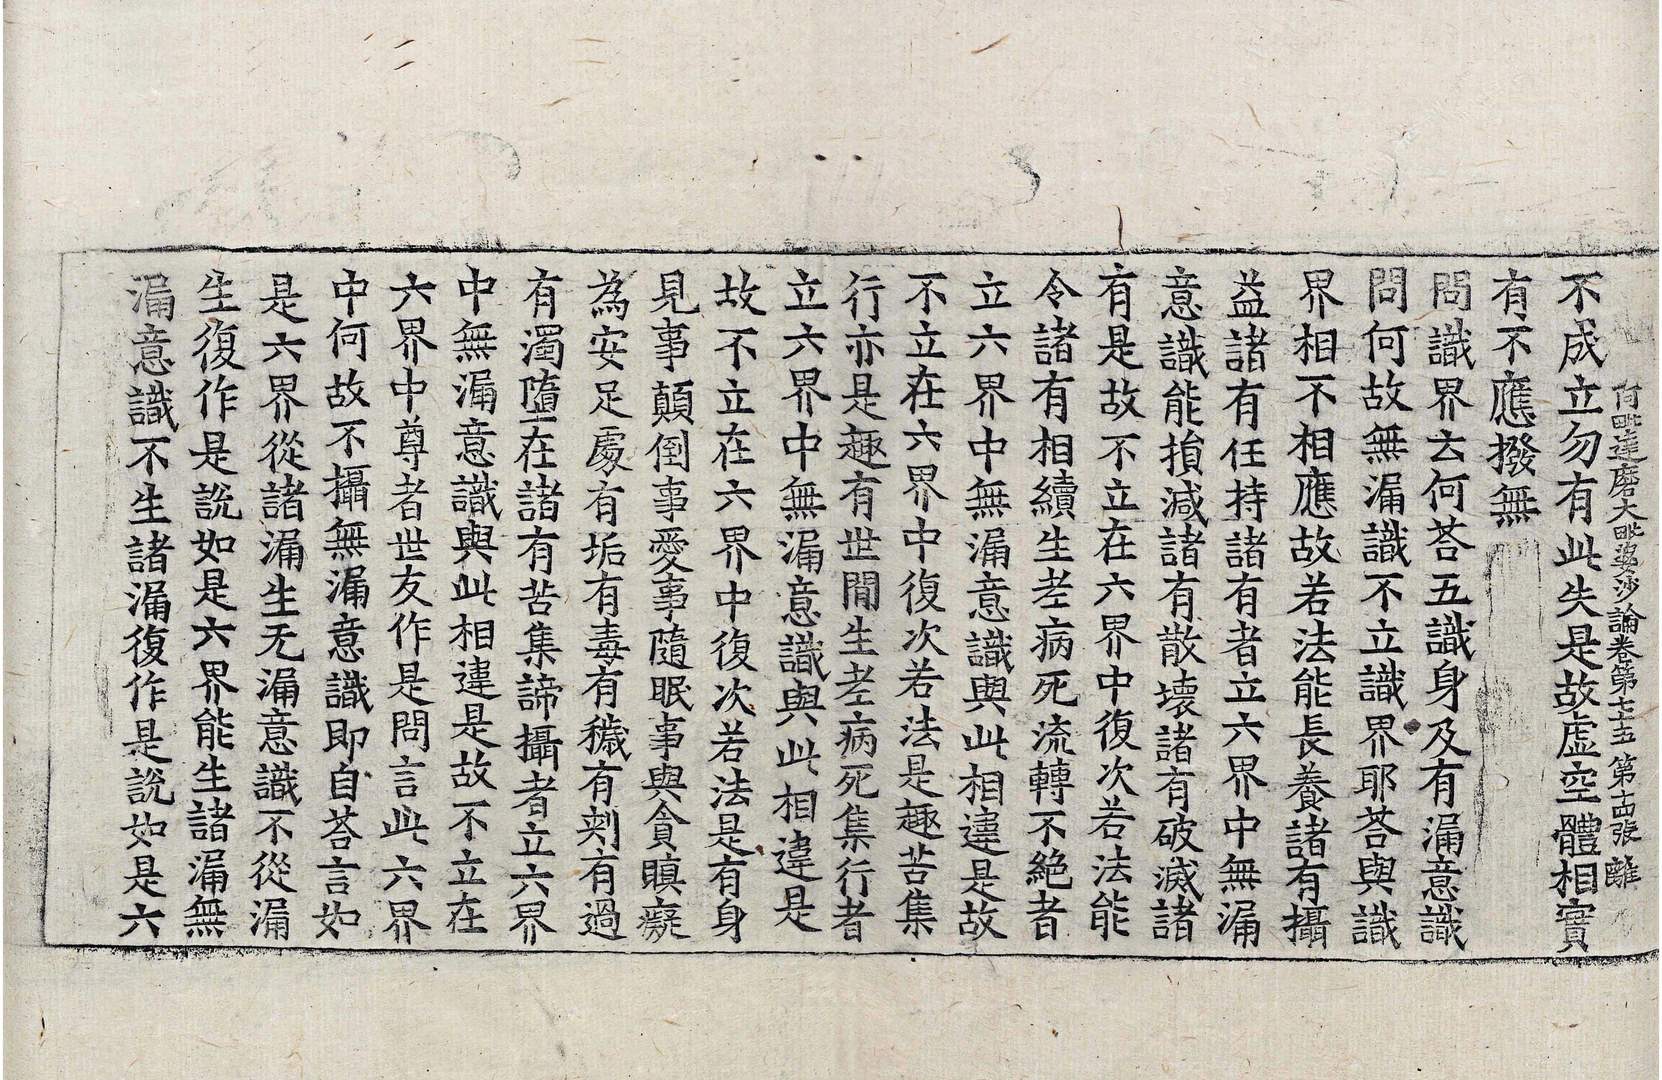 阿毗達磨大毗婆沙論卷第七十五 第十四張 離
不成立勿有此失是故虛空體相實
有不應撥無
問識界云何荅五識身及有漏意識
問何故無漏識不立識界耶荅與識
界相不相應故若法能長養諸有攝
益諸有任持諸有者立六界中無漏
意識能損減諸有散壞諸有破滅諸
有是故不立在六界中復次若法能
令諸有相續生老病死流轉不絶者
立六界中無漏意識與此相違是故
不立在六界中復次若法是趣苦集
行亦是趣有世閒生老病死集行者
立六界中無漏意識與此相違是
故不立在六界中復次若法是有身
見事顛倒事愛事隨眠事與貪瞋癡
為安足處有垢有毒有穢有刺有過
有濁墮在諸有苦集諦攝者立六界
中無漏意識與此相違是故不立在
六界中尊者世友作是問言此六界
中何故不攝無漏意識即自荅言如
是六界從諸漏生无漏意識不從漏
生復作是說如是六界能生諸漏無
漏意識不生諸漏復作是說如是六